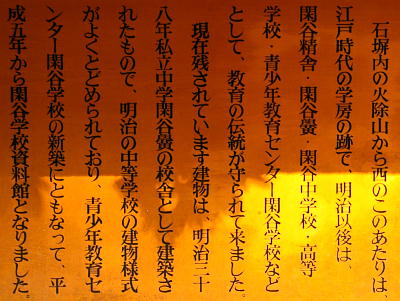 石塀内の火除山から西のこのあたりは、
江戸時代の学房の跡で、明治以後は、
閑谷精舎・閑谷黌・閑谷中学校・高等
学校・青少年教育センター閑谷学校など
として、教育の伝統が守られて来ました。
現在残されています建物は、明治三十
八年私立中学閑谷黌の校舎として建築さ
れたもので、明治の中等学校の建物様式
がよくとどめられており、青少年教育セ
ンター閑谷学校の新築にともなって、平
成五年から閑谷学校資料館となりました。